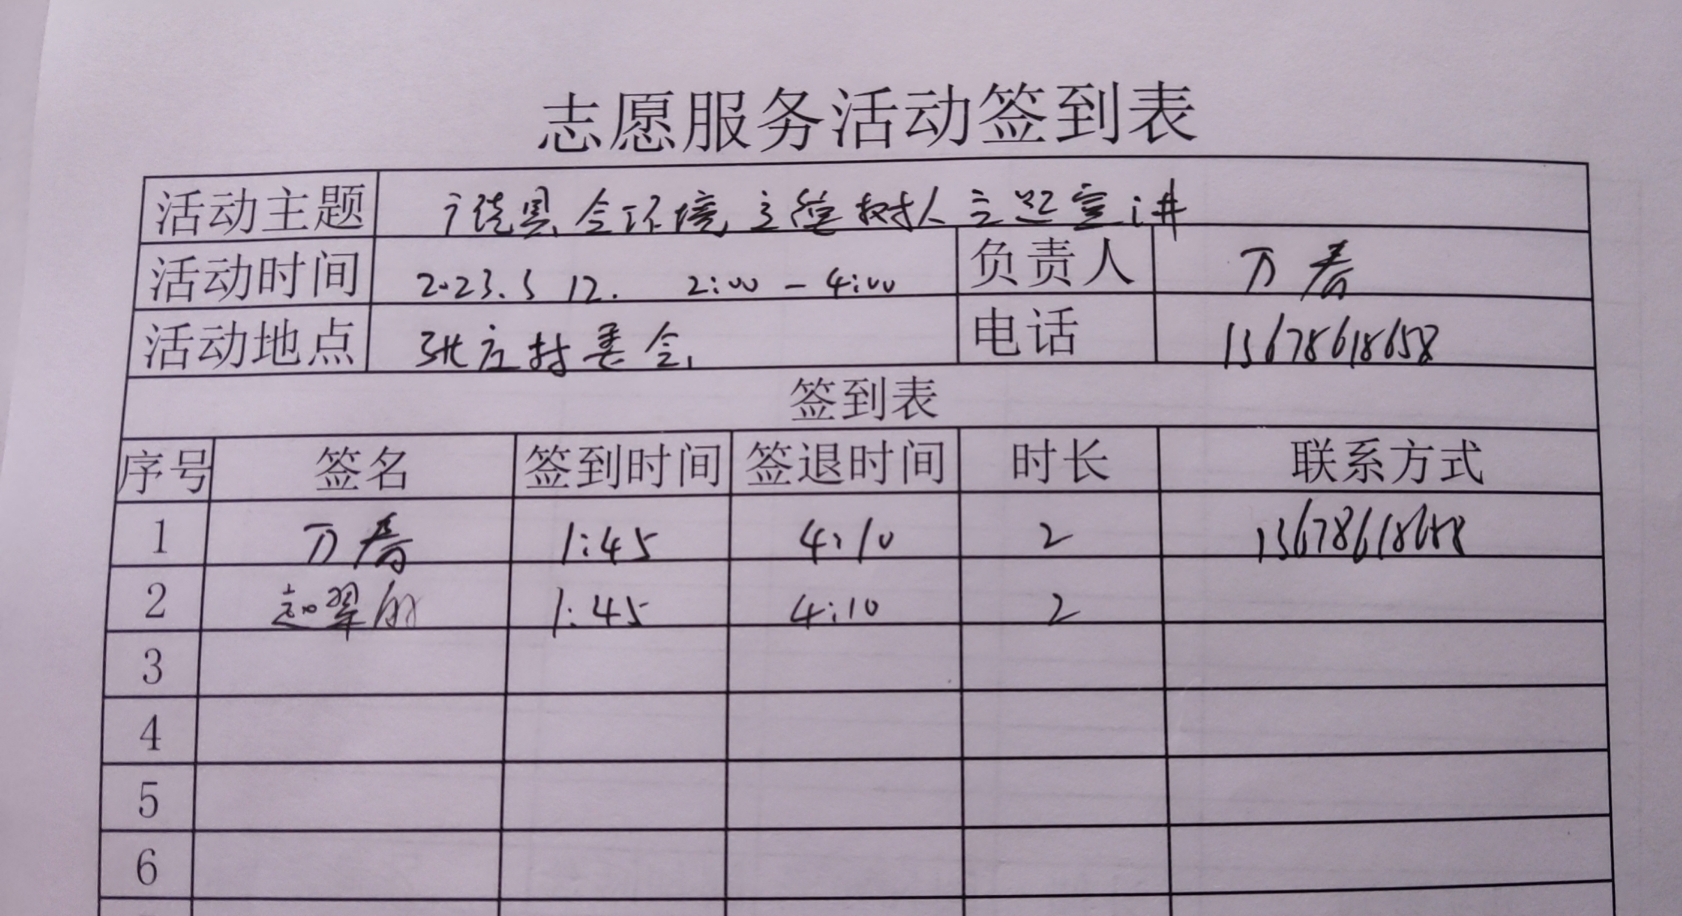 志愿服务活动签到表
活动主题 环境 立德树人主题宣讲
活动时间 2023.5 12. 2:00-4:00 负责人 万春
活动地点 张庄村委会 电话 13678618658
签到表
序号 签名 签到时间 签退时间 时长 联系方式
1 万春 1:45 4:10 2 13678618658
2 赵翠 1:45 4:10 2
3
4
5
6